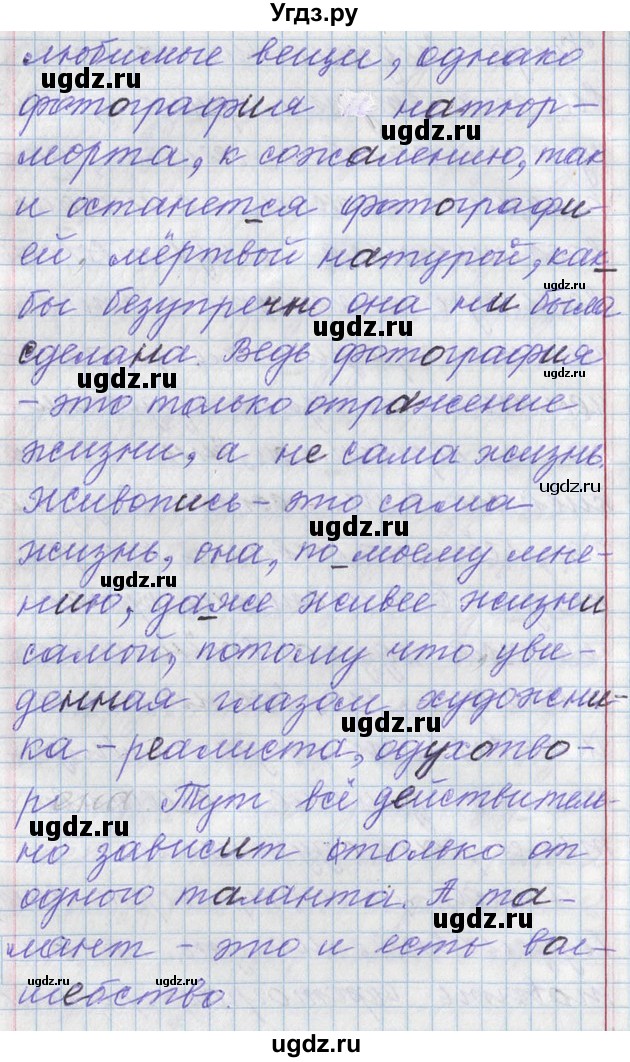 Угдз.ру
любимые вещи, однако
ugdz.ru
фотография натюр-
ugdz.ru
морта, к сожалению, так
и останется фотографи-
ugdz.ru
ей. мёртвой натурой, как
ugdz.ru
бы безупречно она ни была
ugdz.ru
сделана. Ведь фотография
ugdz.ru
- это только отражение
жизни, а не сама жизнь.
ugdz.ru
Живопись - это сама
ugdz.ru
жизнь, она, по моему мне-
ugdz.ru
нию, даже живее жизни
самой, потому что уви-
денная глазом художни-
ugdz.ru
ка - реалиста, одухотво-
рена Тут всё действитель-
ugdz.ru
но зависит только от
одного таланта. А та-
ugdz.ru
лант - это и есть вол-
шебство.
ugdz.ru